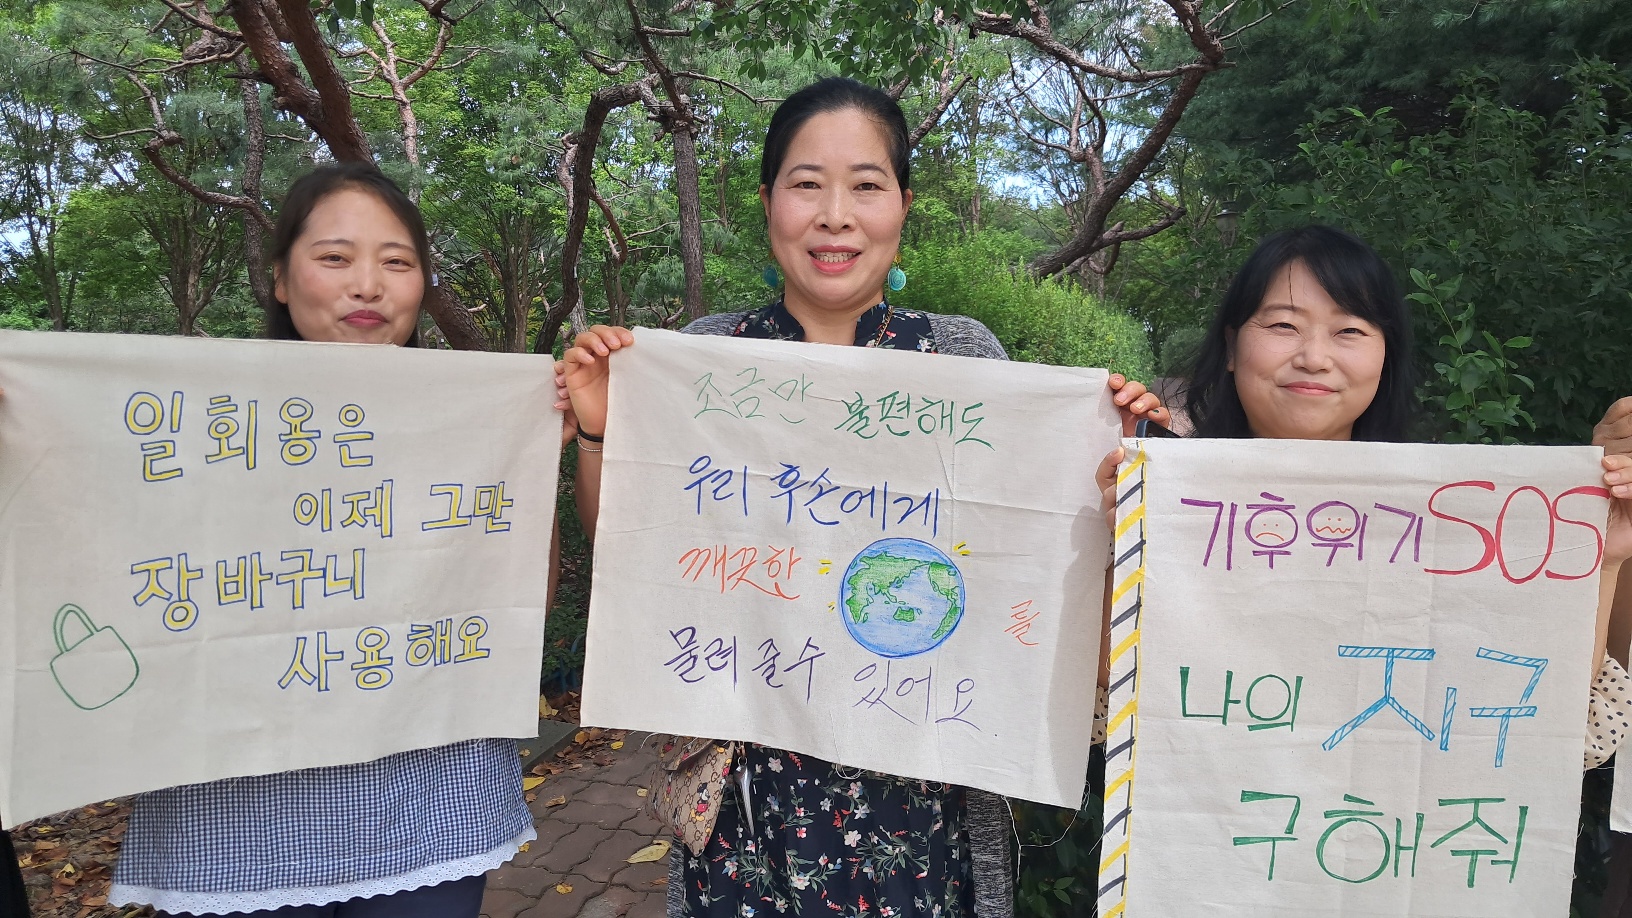 일회용은
이제 그만
장바구니
사용해요
조금만 불편해도
우리 후손에게
깨끗한 를
물려 줄수 있어요
기후위기 SOS
나의 지구
구해줘